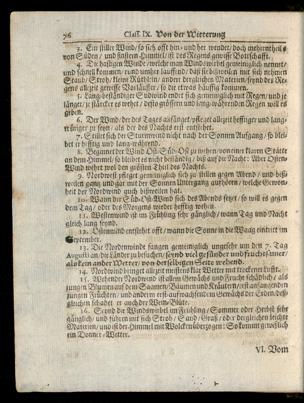 76 Claſſ. IX. Von der Witterung
3. Ein ſtiller Wind/ ſo ſich offt hin- und her wendet/ doch mehrentheils
von Süden/ und finſtern Himmel/ iſt des Regens gewiſſe Bottſchafft.
4. Die haſtigen Winde/ welche man Windwirbel gemeiniglich nennet/
und ſchnell kommen/ rund umher lauffend/ daß ſie bißweilen mit ſich nehmen
Staub/ Stroh/ kleine Rüthlein/ andere dergleichen Materien/ ſeynd des Re-
gens allezeit gewiſſe Vorläuffer/ ſo ter etwas häuffig kommen.
5. Lang-beſtändiger Südwind endet ſich gemeiniglich mit Regen/ und je
länger/ je ſtärcker es wehet/ deſto gröſſern und lang-währenden Regen will es
geben.
6. Der Wind/ der des Tages anfänget/ pflegt allezeit hefftiger und lang-
wieriger zu ſeyn/ als der bey Nachts erſt entſtehet.
7. Stillet ſich der Sturmwind nicht nach der Sonnen Aufgang/ ſo blei-
bet er hefftig und lang-während.
8. Beginnet der Wind Oſt-Süd-Oſt zu wehen/ von einer klaren Stätte
an dem Himmel/ ſo bleibet es nicht beſtändig/ biß auf die Nacht: Aber Oſten-
Wind wehet wol den gröſſten Theil des Nachts.
9. Nordweſt pfleget gemeiniglich ſich zu ſtellen gegen Abend/ und biß-
weilen gantz und gar mit der Sonnen Untergang aufhören/ welche Gewon-
heit der Nordwind auch bißweilen hat.
10. Wann der Süd-Oſt Wind ſich des Abends ſetzet/ ſo will es gegen
dem Tag/ oder des Morgens wieder hefftig wehen.
11. Weſtenwind iſt im Frühling ſehr gänglich/ wann Tag und Nacht
gleich lang ſeynd.
12. Oſtenwind entſtehet offt/ wann die Sonne in die Waag eintritt im
September.
13. Die Nordenwinde fangen gemeiniglich ungefehr um den 7. Tag
Auguſti an/ die Länder zu beluchten/ ſeynd viel geſünder und fruchtſamer/
als kein ander Wetter/ von derſelbigen Seite wehend.
14. Nordwind bringet allezeit meiſtens klar Wetter mit trockener Lufft.
15. Wehender Nordwind iſt allem Gewächs und Frucht ſchädlich/ als
jungen Blumen auf dem Saamen/ Bäumen und Kräutern/ erſt anfangenden
jungen Früchten/ und anderen erſt-aufwachſenden Gewächs der Erden/ deß-
gleichen ſchadet er auch der Wein-Blüte.
16. Seynd die Windwirbel im Frühling/ Sommer oder Herbſt ſehr
gänglich/ und führen mit ſich Stroh/ Sand/ Graß/ oder dergleichen leichte
Materien/ und iſt der Himmel mit Wolcken überzogen: So kommt gewißlich
ein Donner-Wetter.
VI. Vom